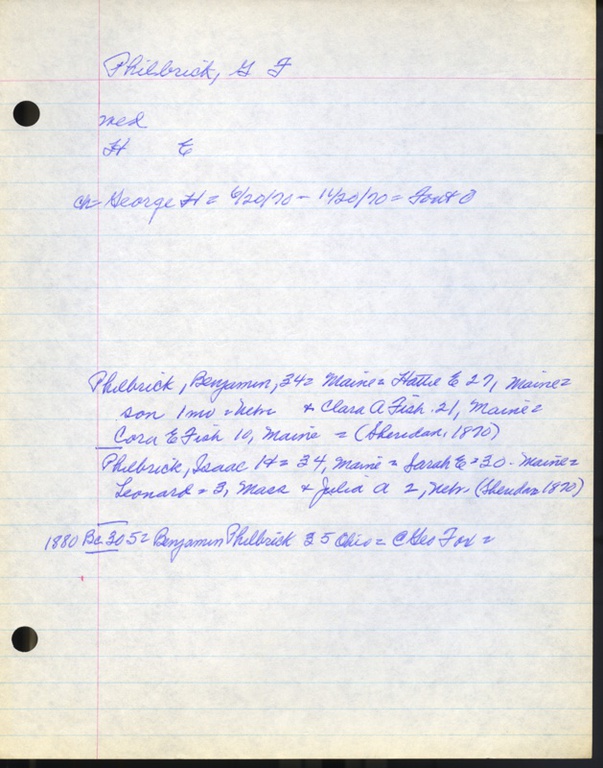 Philbrick, G F
med
H E
ch= George H = 6/20/70 - 11/20/70 = Font
Philbrick, Benjamin, 34= Maine= Hattie E 27, Maine=
son 1mo = Nebr + Clara A Fish 21, Maine=
Cora E Fish 10, Maine = (Sheridan, 1870)
Philbrick, Isaac H= 34, Maine = Sarah E=30- Maine=
Leonard = 3, Mass + Julia A 2, Nebr (Sheridan 1870)
1880 305= Benjamin Philbrick 35 Ohio= @ Geo Fox =